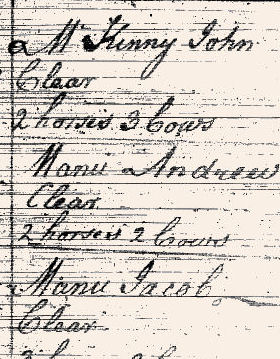 McKinny John
Clear
2 horses 3 Cows
Manu Andrew
Clear
2 horses 2 Cows
Manu Jacob
Clear